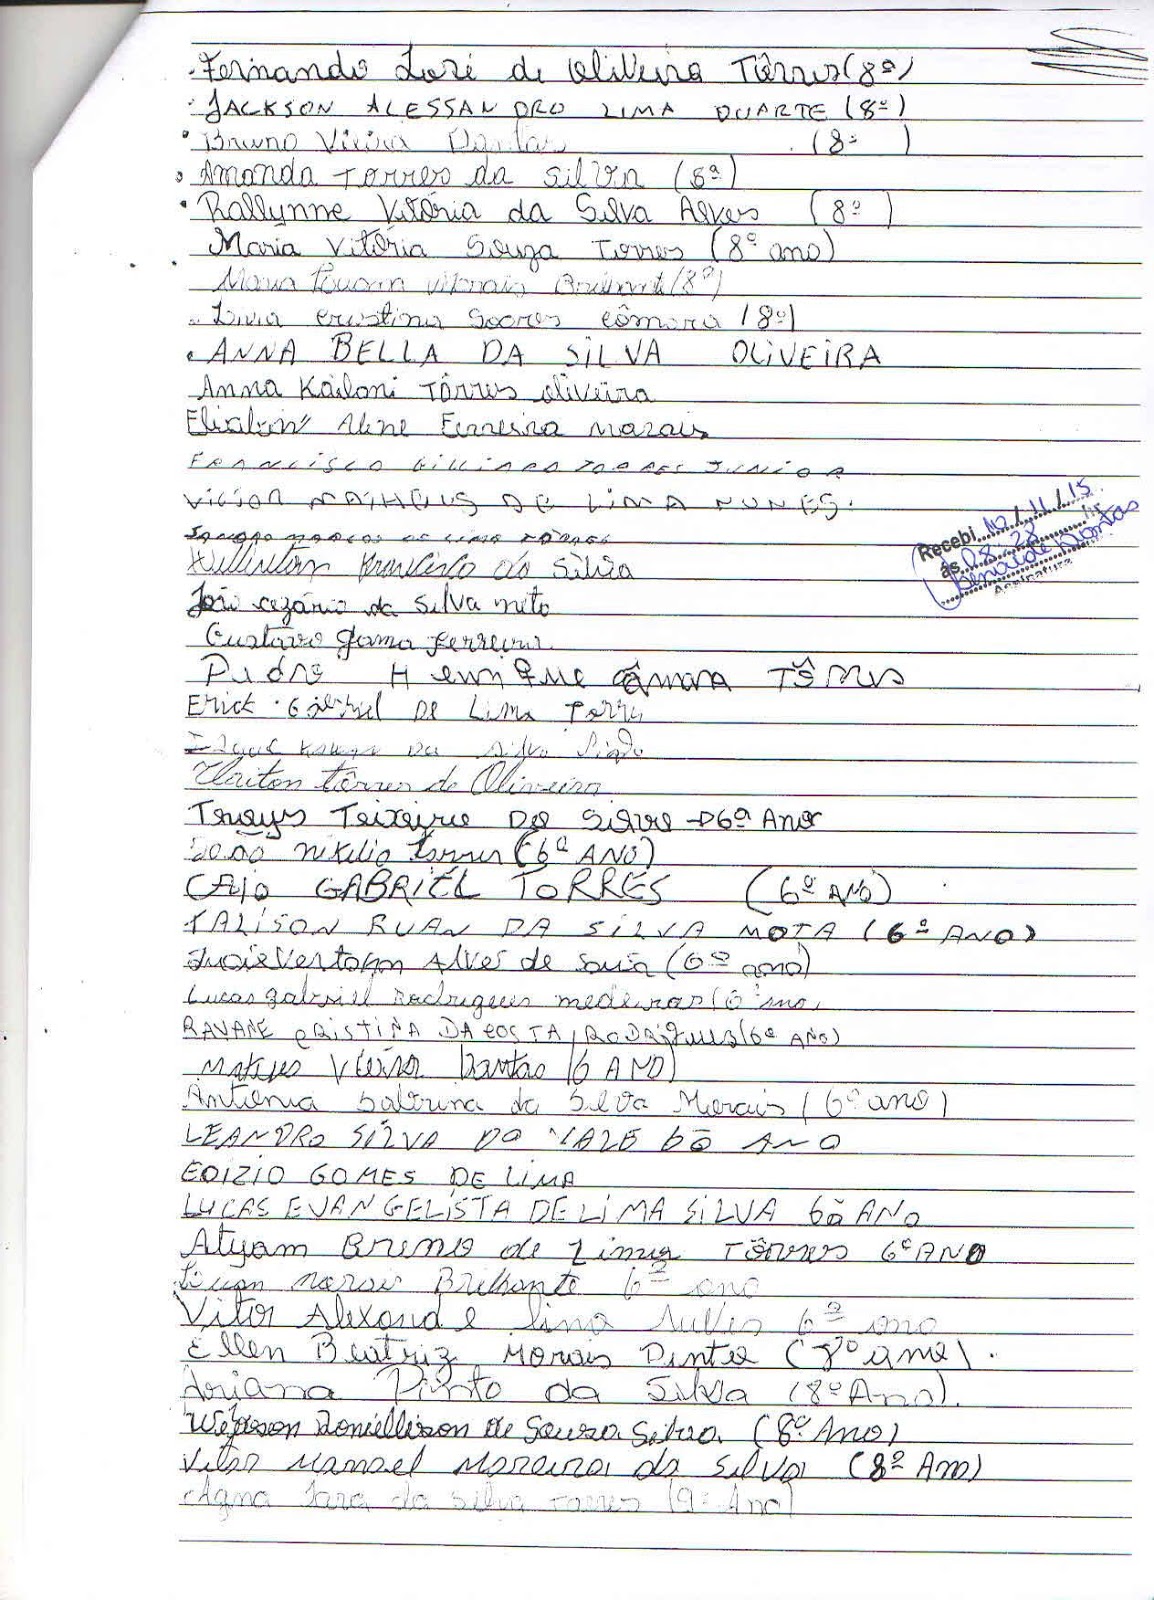 Fernando José de Oliveira Tôrres (8º)
JACKSON ALESSANDRO LIMA DUARTE (8º)
Bruno Vieira Dantas (8º )
Amanda Torres da Silva (8ª)
Rallynne Vitória da Silva Alves (8º)
Maria Vitória Souza Torres (8º ano)
Maria Morais Brilhante (8º)
Livia cristina Soares câmara (8º)
ANNA BELLA DA SILVA OLIVEIRA
Anna Kailani Tôrres oliveira
Aline Ferreira Morais
FRANCISCO TORRES JUNIOR
VICTOR MATHEUS DE LIMA NUNES.
MARCOS DE LIMA TORRES
da Silva
João cezário da Silva neto
Gustavo gama ferreira
Pedro Henrique câmara Tôrres
Erick Gabriel DE Lima Torres
DA Silva
Tôrres de Oliveira
Thays Teixeira Da Silva 6º Ano
João Torres (6º ANO)
CAIO GABRIEL TORRES (6º ANO)
TALISON RUAN DA SILVA MOTA (6º ANO)
Alves de Sousa (6º ano)
Lucas gabriel Rodrigues medeiros (6º ano)
RAVANE CRISTINA DA COSTA RODRIGUES (6º ANO)
Mateus Vieira Dantas (6 ANO)
Antonia Sabrina da Silva Morais (6º ano)
LEANDRO SILVA DO VALE 6º ANO
EDIZIO GOMES DE LIMA
LUCAS EVANGELISTA DE LIMA SILVA 6º ANO
Bruno de Lima Tôrres 6º ANO
Luan morais Brilhante 6º ano
Vitor Alexandre lima Alves 6º ano
Ellen Beatriz Morais Pinto (7º ano)
Adriana Pinto da Silva (8º Ano)
de Souza Silva (8º Ano)
Vitor Manoel Moreira da Silva (8º Ano)
Agna Iara da Silva Torres (9º Ano)
Recebi 10/11/15
às 08:28 hs
Dantas
Assinatura